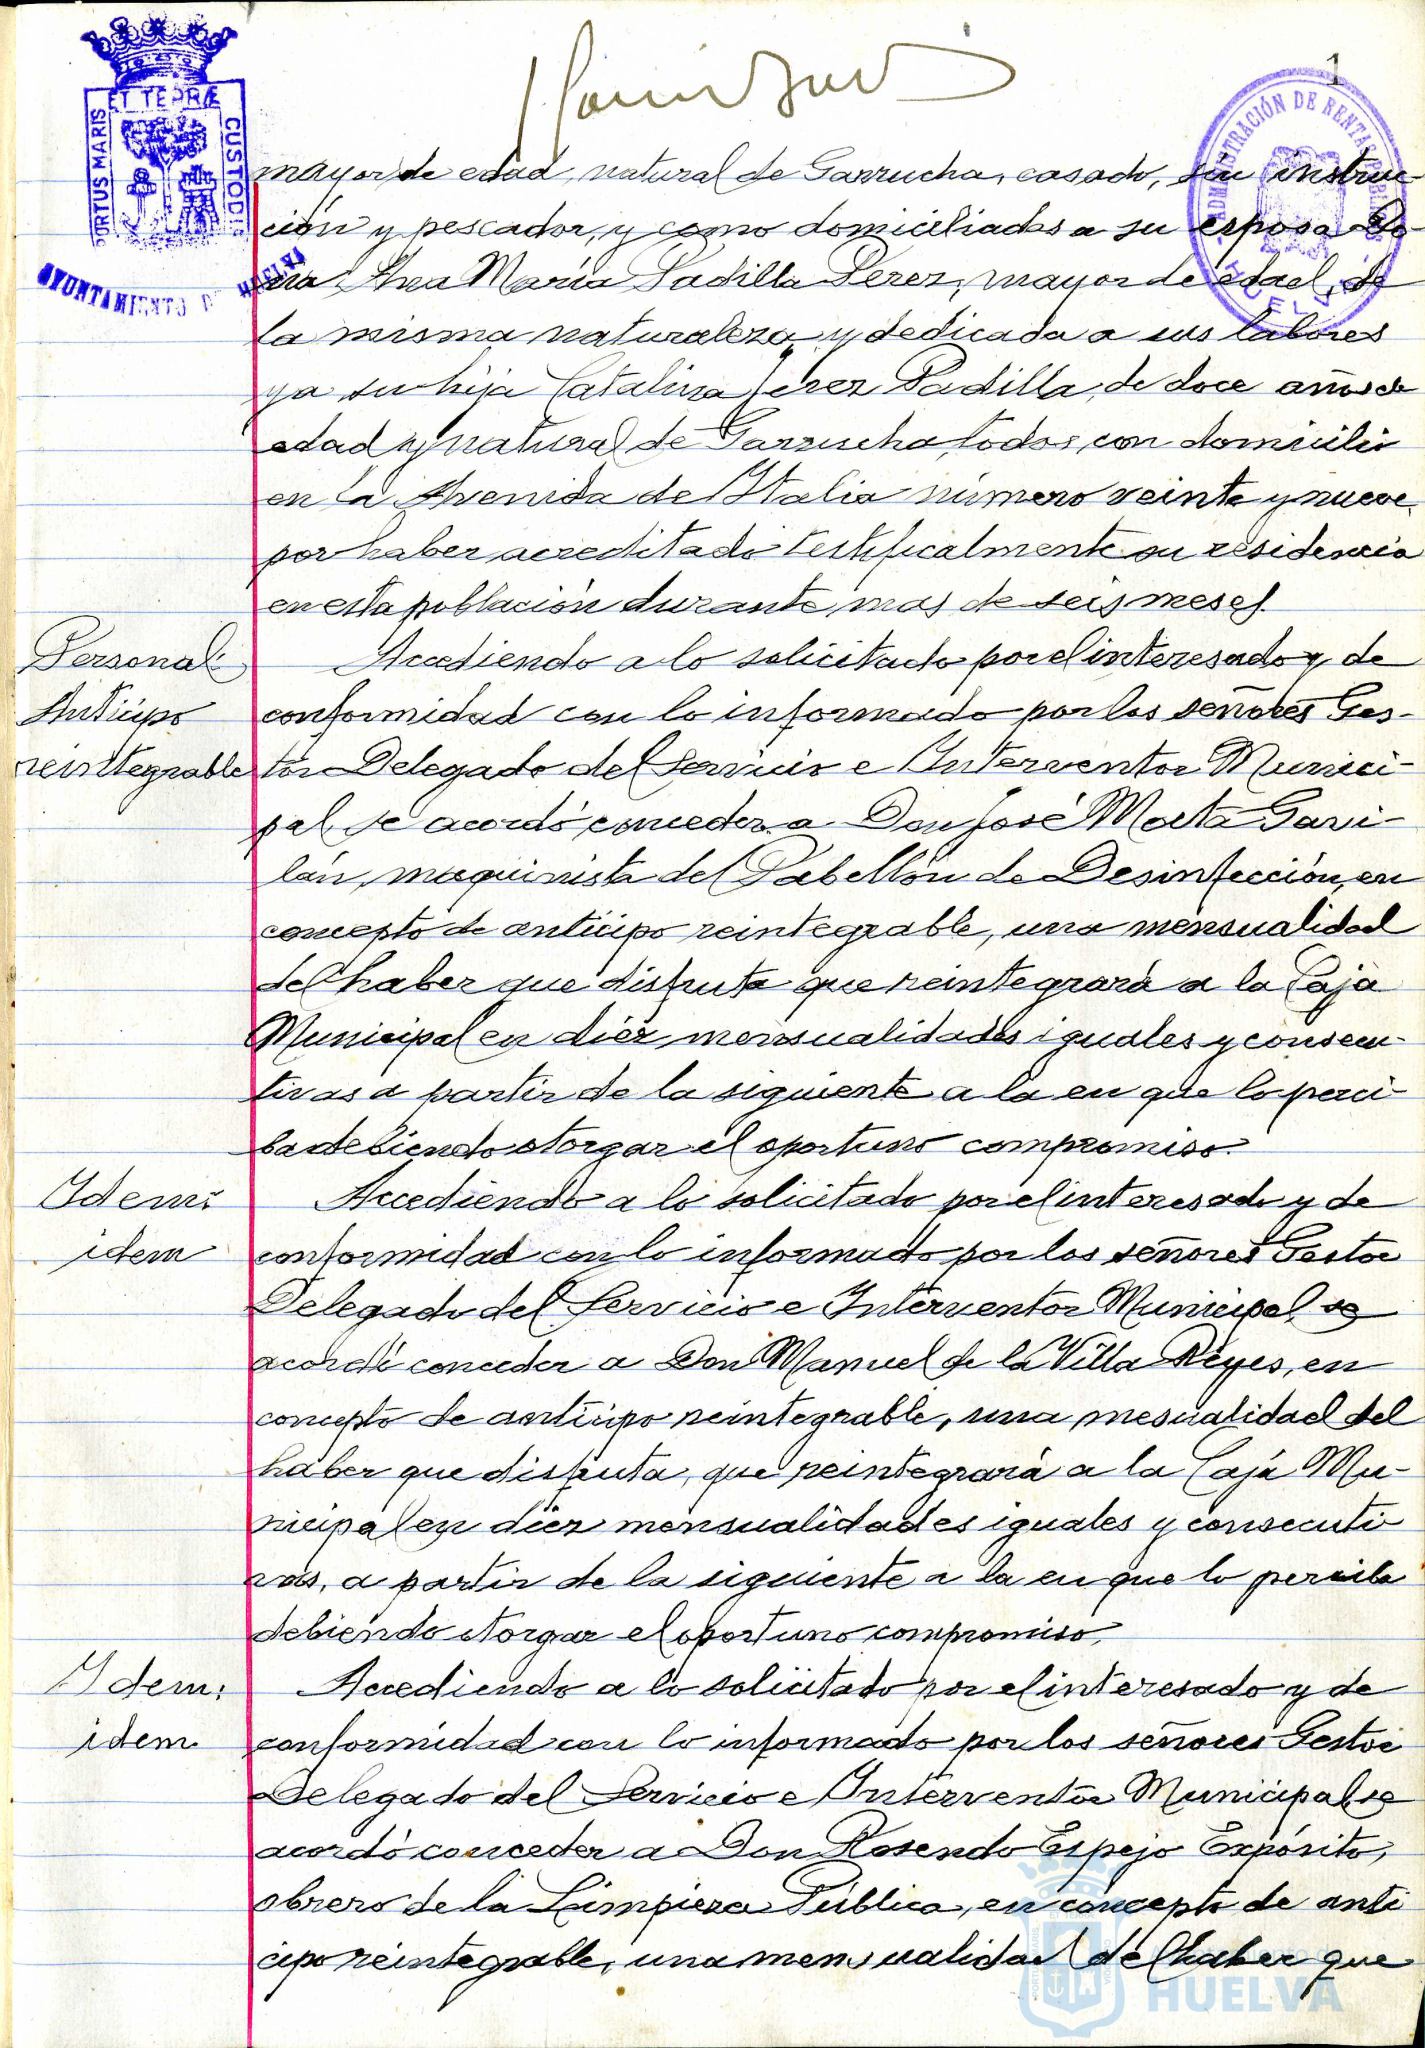 1
PORTUS MARIS
ET TERRÆ
CUSTODIA
AYUNTAMIENTO DE HUELVA
ADMINISTRACIÓN DE RENTAS PUBLICAS
HUELVA
mayor de edad, natural de Garrucha, casado, sin instruc-
ción y pescador, y como domiciliadas a su esposa Do-
ña Ana María Padilla Perez, mayor de edad, de
la misma naturaleza y dedicada a sus labores
y a su hija Catalina Jerez Padilla, de doce años de
edad y natural de Garrucha, todos, con domicilio
en la Avenida de Italia número veinte y nueve,
por haber acreditado testificalmente su residencia
en esta población durante mas de seis meses.
Personal:
Anticipo
reintegrable
Accediendo a lo solicitado por el interesado y de
conformidad con lo informado por los señores Ges-
tor Delegado del Servicio e Interventor Munici-
pal, se acordó conceder a Don José Morta Gavi-
lán, maquinista del Pabellón de Desinfección, en
concepto de anticipo reintegrable, una mensualidad
del haber que disfruta que reintegrará a la Caja
Municipal en diez mensualidades iguales y consecu-
tivas a partir de la siguiente a la en que lo perci-
ba debiendo otorgar el oportuno compromiso.
Idem:
idem
Accediendo a lo solicitado por el interesado y de
conformidad con lo informado por los señores Gestor
Delegado del Servicio e Interventor Municipal, se
acordó conceder a Don Manuel de la Villa Reyes, en
concepto de anticipo reintegrable, una mesualidad del
haber que disfruta, que reintegrará a la Caja Mu-
nicipal en diez mensualidades iguales y consecuti
vas, a partir de la siguiente a la en que lo perciba
debiendo otorgar el oportuno compromiso.
Idem:
idem.
Accediendo a lo solicitado por el interesado y de
conformidad con lo informado por los señores Gestor
Delegado del Servicio e Interventor Municipal, se
acordó conceder a Don Rosendo Espejo Expósito,
obrero de la Limpieza Pública, en concepto de anti
cipo reintegrable, una mensualidad del haber que
HUELVA